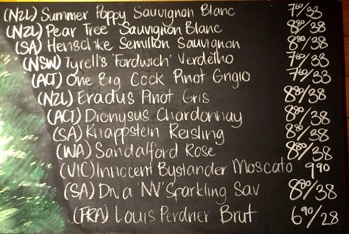 (NZL) Summer Poppy Sauvignon Blanc 7⁶⁰/33
(NZL) Pear Tree Sauvignon Blanc 8⁸⁰/38
(SA) Henschke Semillon Sauvignon 8⁸⁰/38
(NSW) Tyrell's 'Fordwich' Verdelho 7⁶⁰/33
(ACT) One Big Cock Pinot Grigio 7⁶⁰/33
(NZL) Eradus Pinot Gris 8⁸⁰/38
(ACT) Dionysus Chardonnay 8⁸⁰/38
(SA) Knappstein Reisling 8⁸⁰/38
(WA) Sandalford Rose 8⁸⁰/38
(VIC) Innocent Bystander Moscato 9⁹⁰
(SA) Diva 'NV' Sparkling Sav 8⁸⁰/38
(FRA) Louis Perdrier Brut 6⁹⁰/28